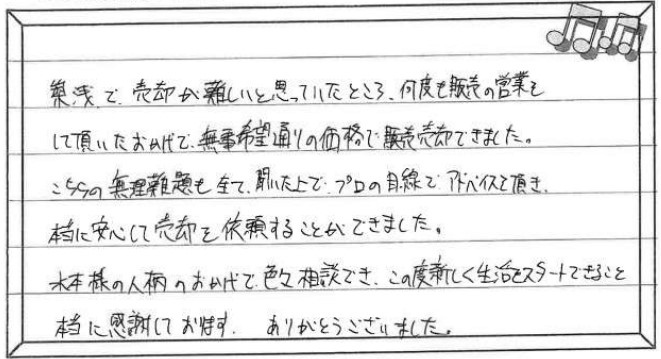 築浅で、売却が難しいと思っていたところ、何度も販売の営業を
して頂いたおかげで、無事希望通りの価格で販売売却できました。
こちらの無理難題も全て、聞いた上で、プロの目線でアドバイスを頂き、
本当に安心して売却を依頼することができました。
水本様の人柄のおかげで、色々相談でき、この度新しく生活をスタートできること
本当に感謝しております。 ありがとうございました。